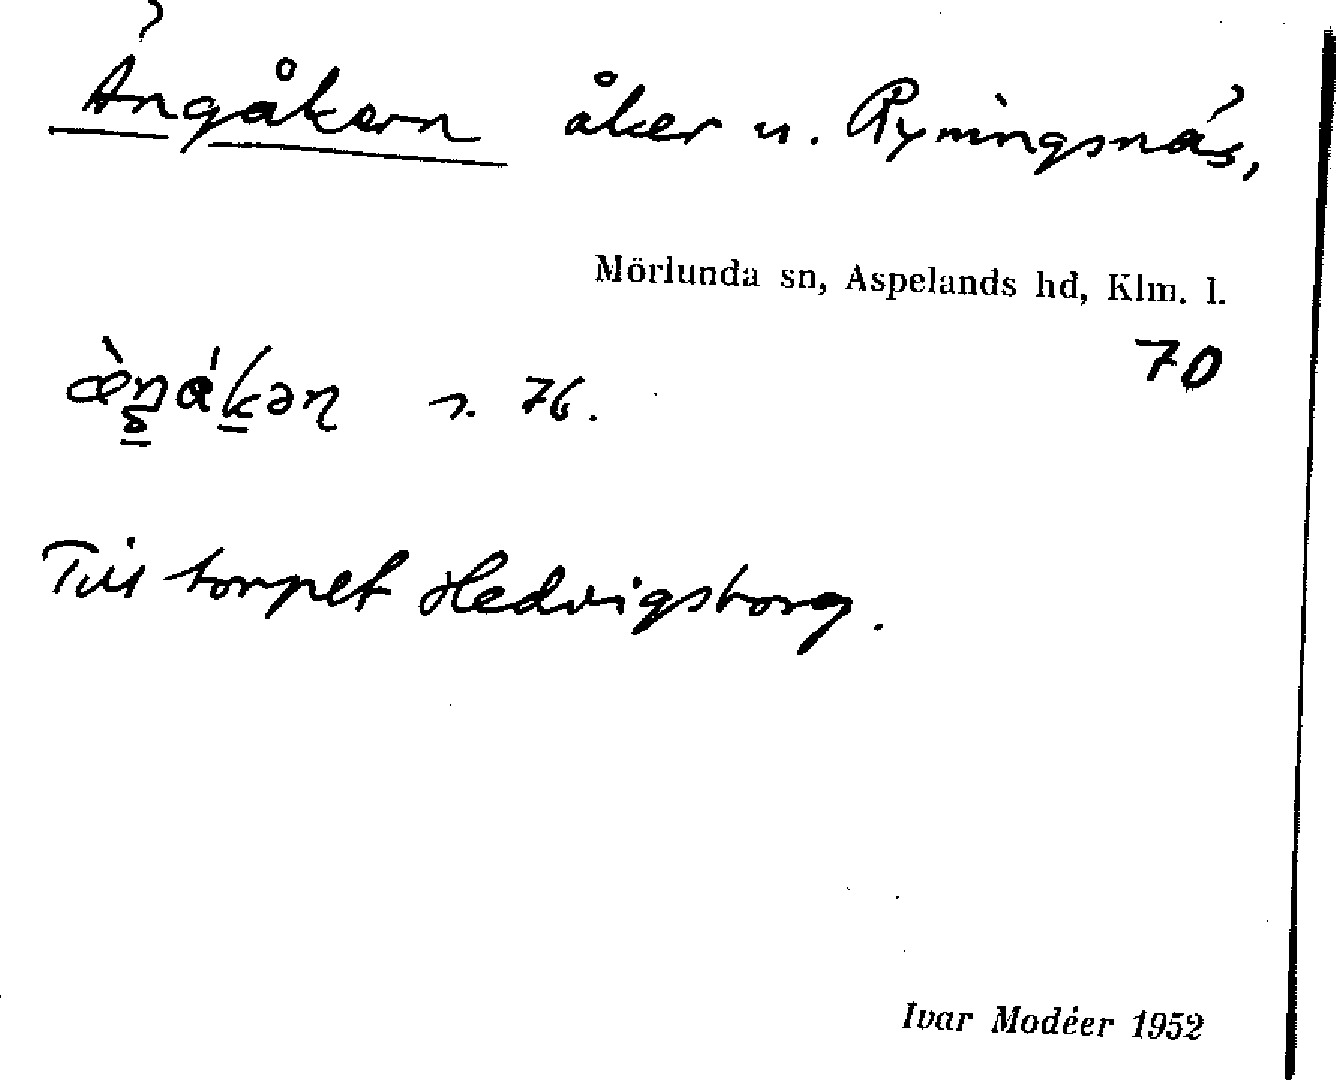 Ängåkern åker u. Ryningsnäs,
Mörlunda sn, Aspelands hd, Klm. l.
70
s. 76.
Till torpet Hedvigsborg.
Ivar Modéer 1952